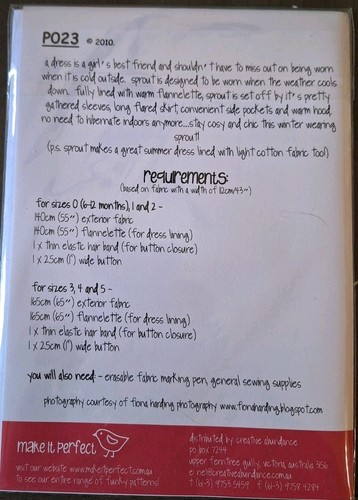 PO23 © 2010.
a dress is a girl's best friend and shouldn't have to miss out on being worn
when it is cold outside. sprout is designed to be worn when the weather cools
down. fully lined with warm flannelette, sprout is set off by it's pretty
gathered sleeves, long flared skirt, convenient side pockets and warm hood.
no need to hibernate indoors anymore...stay cosy and chic this winter wearing
sprout!
(p.s. sprout makes a great summer dress lined with light cotton fabric too!)
requirements:
(based on fabric with a width of 112cm/43")
for sizes 0 (6-12 months), 1 and 2 -
140cm (55") exterior fabric
140cm (55") flannelette (for dress lining)
1 x thin elastic hair band (for button closure)
1 x 2.5cm (1") wide button
for sizes 3, 4 and 5 -
165cm (65") exterior fabric
165cm (65") flannelette (for dress lining)
1 x thin elastic hair band (for button closure)
1 x 2.5cm (1") wide button
you will also need: - erasable fabric marking pen, general sewing supplies
photography courtesy of fiona harding photography www.fionaharding.blogspot.com
make it perfect
visit our website www.makeitperfect.com.au
to see our entire range of funky patterns!
distributed by creative abundance
po box 7244
upper ferntree gully, victoria, australia 3156
e: net@creativeabundance.com.au
t: (61-3) 9753 5459 f: (61-3) 9758 4284